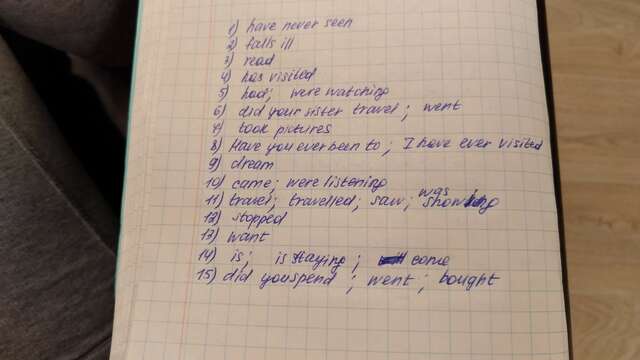 1) have never seen
2) falls ill
3) read
4) has visited
5) had; were watching
6) did your sister travel; went
7) took pictures
8) Have you ever been to; I have ever visited
9) dream
10) came; were listening
11) travel; travelled; saw; was showing
12) stopped
13) want
14) is; is staying; come
15) did you spend; went; bought